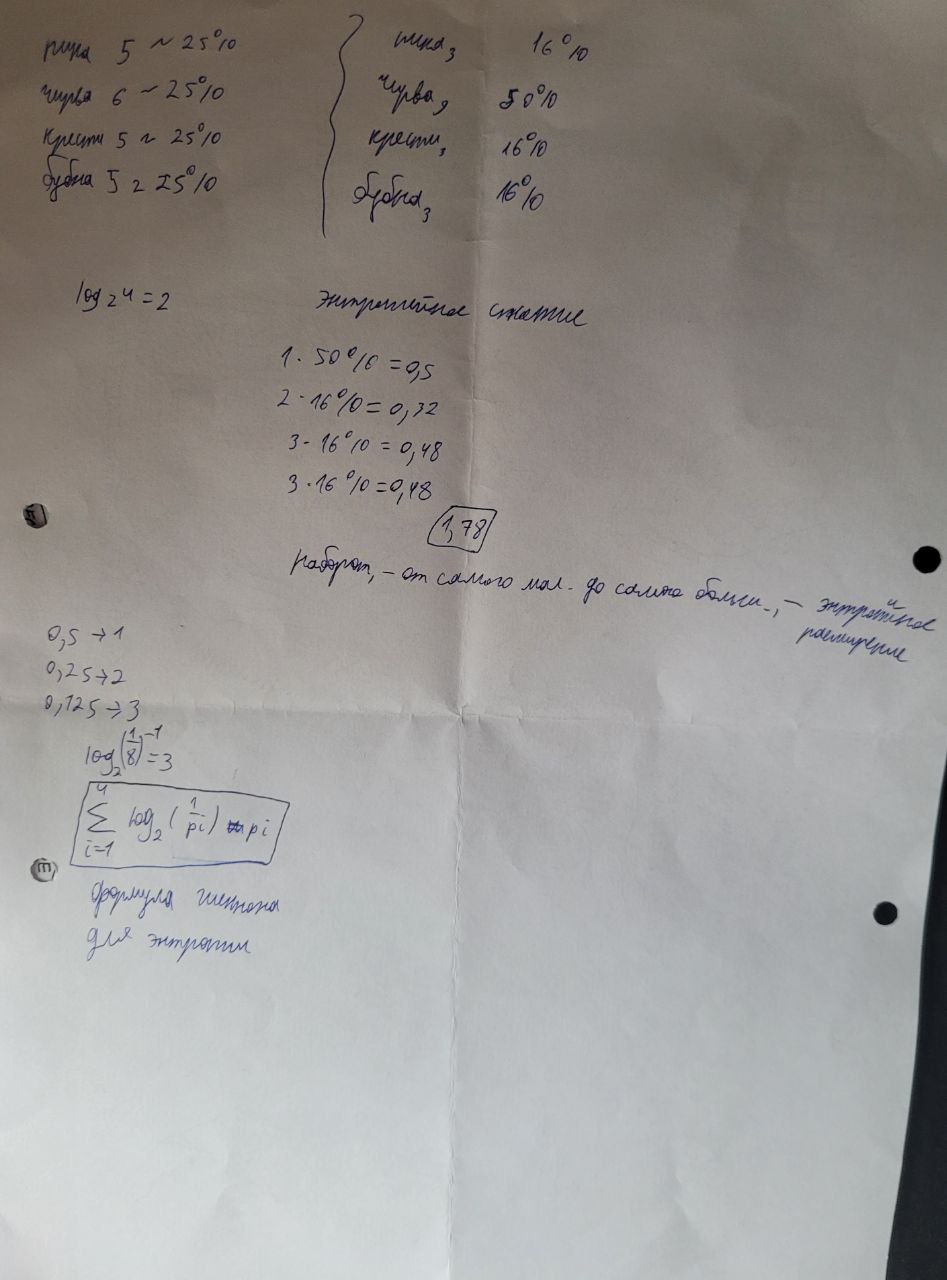 пика 5 ~ 25%
черва 6 ~ 25%
крести 5 ~ 25%
бубна 5 ~ 25%
пика, 3 16%
черва, 9 50%
крести, 3 16%
бубна, 3 16%
log₂4 = 2
энтропийное сжатие
1 · 50% = 0,5
2 · 16% = 0,32
3 · 16% = 0,48
3 · 16% = 0,48
1,78
наоборот, – от самого мал. до самого больш., – энтропийное
расширение
0,5 → 1
0,25 → 2
0,125 → 3
log₂(1/8)⁻¹ = 3
4
∑ log₂ (1/pi) pi
i=1
формула шеннона
для энтропии